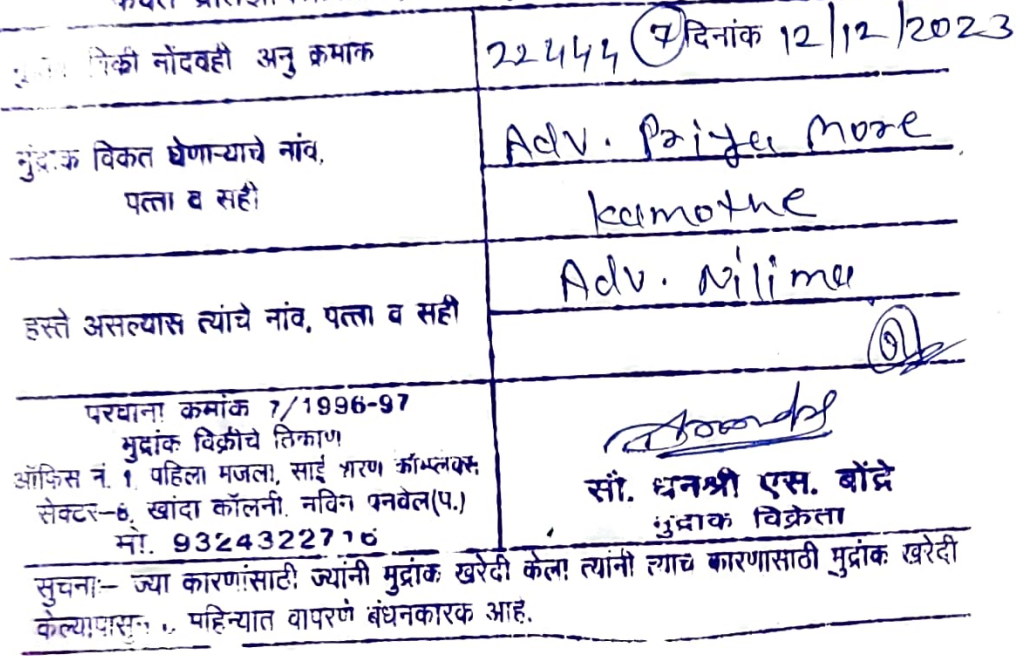 विक्री नोंदवही अनु क्रमांक 22444 (7) दिनांक 12/12/2023
मुद्रांक विकत घेणाऱ्याचे नांव, Adv. Priya More
पत्ता व सही Kamothe
Adv. Nilima
हस्ते असल्यास त्यांचे नांव, पत्ता व सही
परवाना क्रमांक 7/1996-97
मुद्रांक विक्रीचे ठिकाण
ऑफिस नं. 1 पहिला मजला, साई शरण कॉम्प्लेक्स
सेक्टर-6, खांदा कॉलनी, नविन पनवेल(प.)
मो. 9324322716
सौ. धनश्री एस. बोंद्रे
मुद्रांक विक्रेता
सुचना:- ज्या कारणांसाठी ज्यांनी मुद्रांक खरेदी केला त्यांनी त्याच कारणासाठी मुद्रांक खरेदी
केल्यापासून महिन्यात वापरणे बंधनकारक आहे.